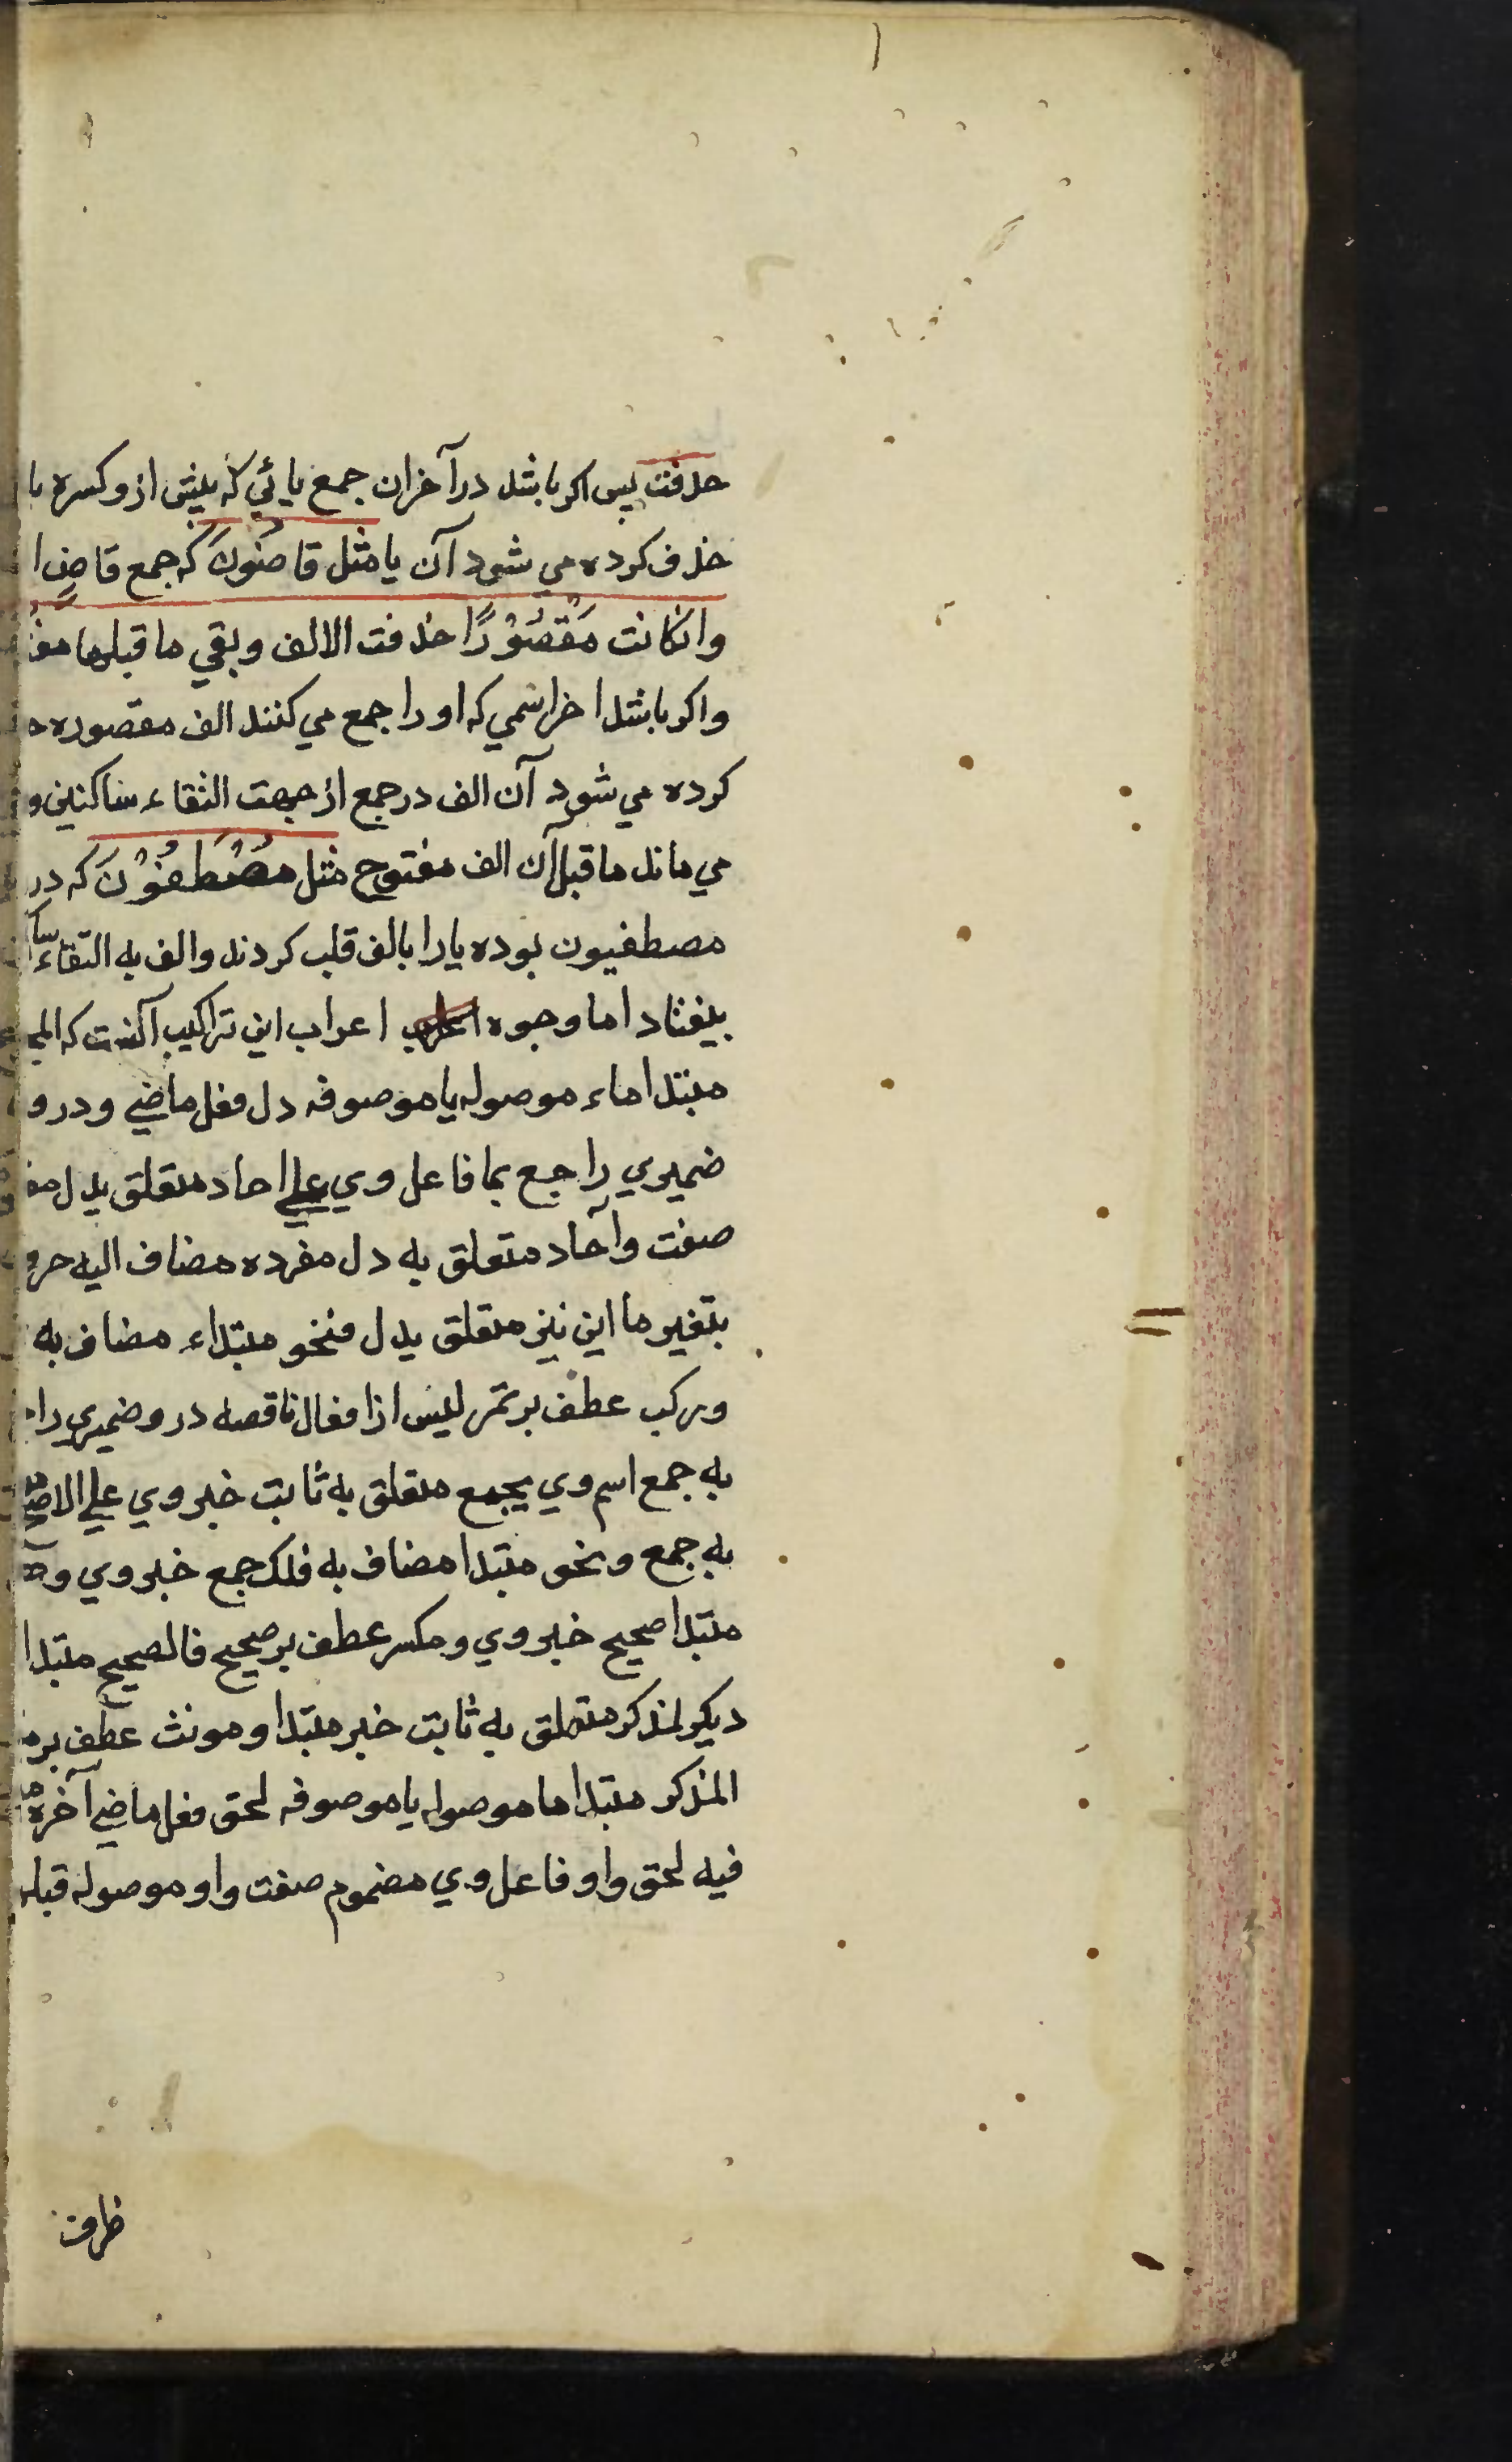 حذفت پس اکر باشد در آخر ان جمع یائي که پیش از و کسره با
حذف کرده مي شود آن یا مثل قاضُونَ که جمع قاضٍ
وانکانت مَقْصُوْرًا حذفت الالف وبقي ما قبلها
واکر باشد اخر اسمي که او را جمع مي کنند الف مقصوره
کرده مي شود آن الف در جمع از جهت التقاء ساکنین و
مي ماند ما قبل آن الف مفتوح مثل مُصْطَفَوْنَ که در
مصطفیون بوده یا را بالف قلب کردند والف به التقاء
بیفتاد اما وجوه اعراب این تراکیب آنست که
مبتدا ماء موصوله یا موصوفه دل فعل ماضي ودر و
ضمیري راجع بما فاعل وي علي احاد متعلق بدل
صفت وآحاد متعلق به دل مفرده مضاف الیه
بتغیر ما این نیز متعلق بدل فنحو مبتداء مضاف به
ورکب عطف بر تمر لیس از افعال ناقصه در و ضمیري
به جمع اسم وي بجمع متعلق به ثابت خبر وي علي الاصح
به جمع ونحو مبتدا مضاف به فلک جمع خبر وي
مبتدا صحیح خبر وي ومکسر عطف بر صحیح فالصحیح مبتدا
دیکر لمذکر متعلق به ثابت خبر مبتدا ومونث عطف بر
المذکر مبتدا ما موصوله یا موصوفه لحق فعل ماضي آخره
فیه لحق واو فاعل وي مضموم صفت واو موصوله قبله